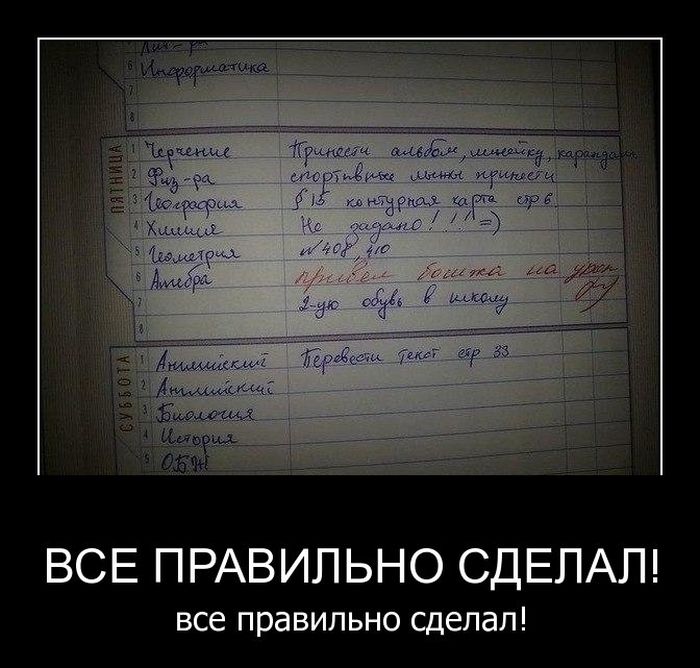 Лит-ра
6 Информатика
7
8
ПЯТНИЦА
1 Черчение Принести альбом, линейку, карандаш
2 Физ-ра спортивные лыжи принести
3 География § 15 контурная карта стр 6
4 Химия Не задано!!!! =)
5 Геометрия № 408, 410
6 Алгебра привел бомжа на урок
7 2-ую обувь в школу
8
СУББОТА
1 Английский Перевести текст стр 33
2 Английский
3 Биология
4 История
5 ОБЖ
ВСЕ ПРАВИЛЬНО СДЕЛАЛ!
все правильно сделал!